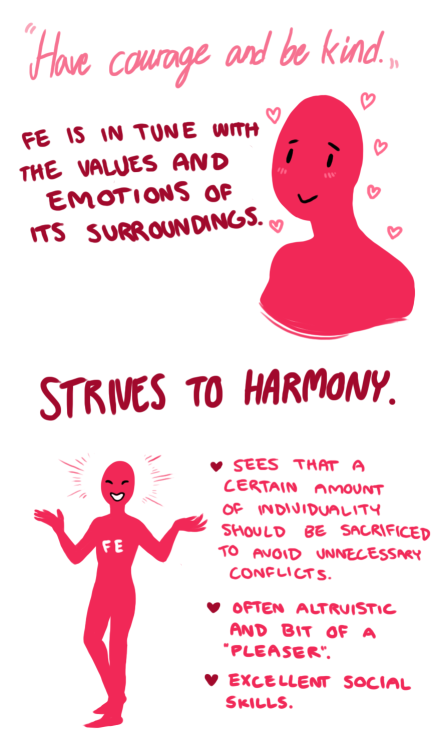 "Have courage and be kind."
FE IS IN TUNE WITH
THE VALUES AND
EMOTIONS OF
ITS SURROUNDINGS.
STRIVES TO HARMONY.
SEES THAT A
CERTAIN AMOUNT
OF INDIVIDUALITY
SHOULD BE SACRIFICED
TO AVOID UNNECESSARY
CONFLICTS.
FE
OFTEN ALTRUISTIC
AND BIT OF A
"PLEASER".
EXCELLENT SOCIAL
SKILLS.